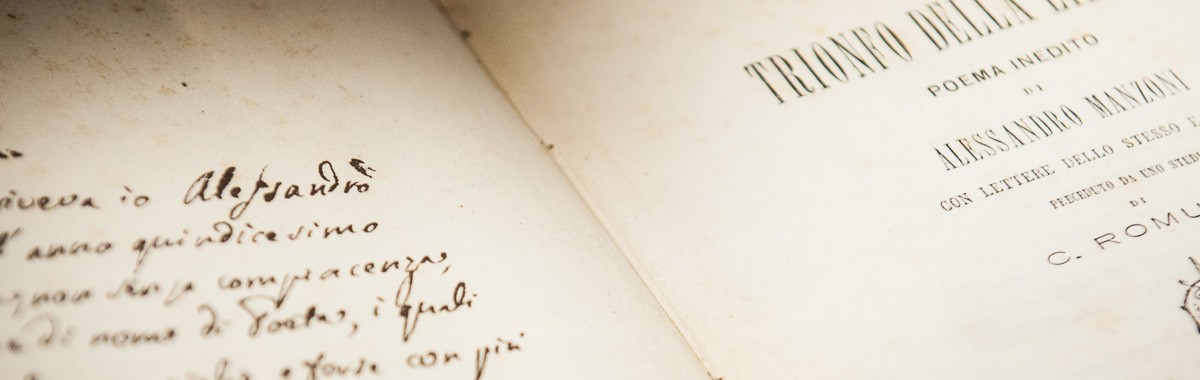 io Alessandro
anno quindicesimo
senza compiacenza,
di nome di Poeta, i quali
e forse con più
TRIONFO DELLA
POEMA INEDITO
DI
ALESSANDRO MANZONI
CON LETTERE DELLO STESSO E
PRECEDUTO DA UNO STUD
DI
C. ROMU